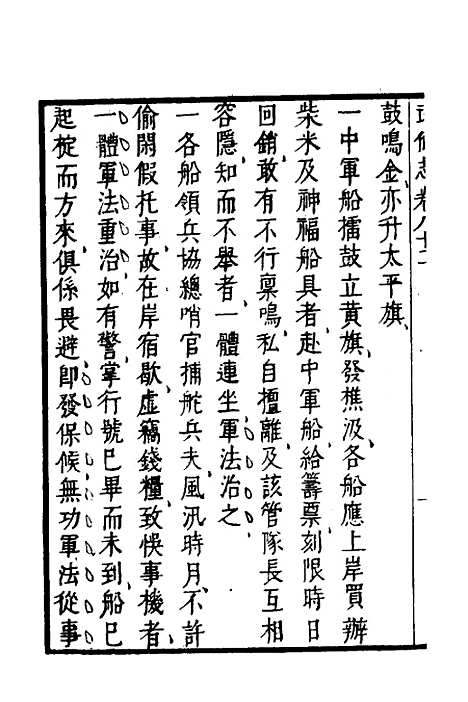 武備志卷八十二
鼓鳴金亦升太平旗
一中軍船擂鼓立黃旗發樵汲各船應上岸買辦
柴米及神福船具者赴中軍船給籌票刻限時日
回銷敢有不行稟鳴私自擅離及該管隊長互相
容隱知而不舉者一體連坐軍法治之
一各船領兵協總哨官捕舵兵夫風汛時月不許
偷閑假托事故在岸宿歇虛縻錢糧致悞事機者
一體軍法重治如有警掌行號已畢而未到船已
起椗而方來俱係畏避即發保候無功軍法從事